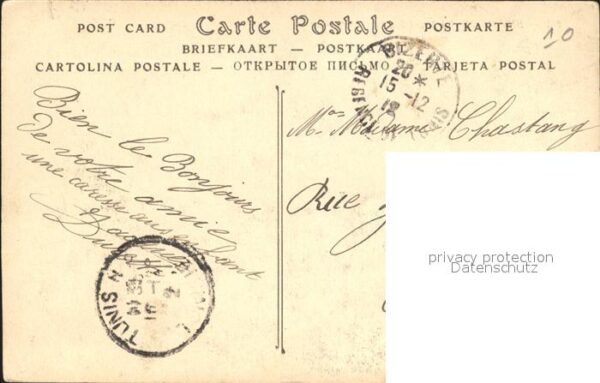 POST CARD Carte Postale POSTKARTE
BRIEFKAART — POSTKAART
CARTOLINA POSTALE — ОТКРЫТОЕ ПИСЬМО TARJETA POSTAL
10
BIZERTE
20 *
15 -12
Bien le Bonjours
de votre amie
une caresse aus enfant
Madame Chastang
Rue
privacy protection
Datenschutz
TUNIS